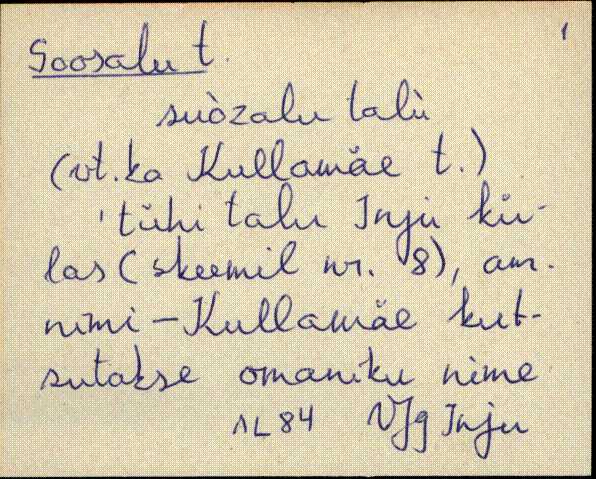 1
Soosalu t.
suòzalu talù
(vt. ka Kullamäe t.)
'tühi talu Inju kü-
las (skeemil nr. 8), am.
nimi – Kullamäe kut-
sutakse omaniku nime
AL 84 VJg Inju